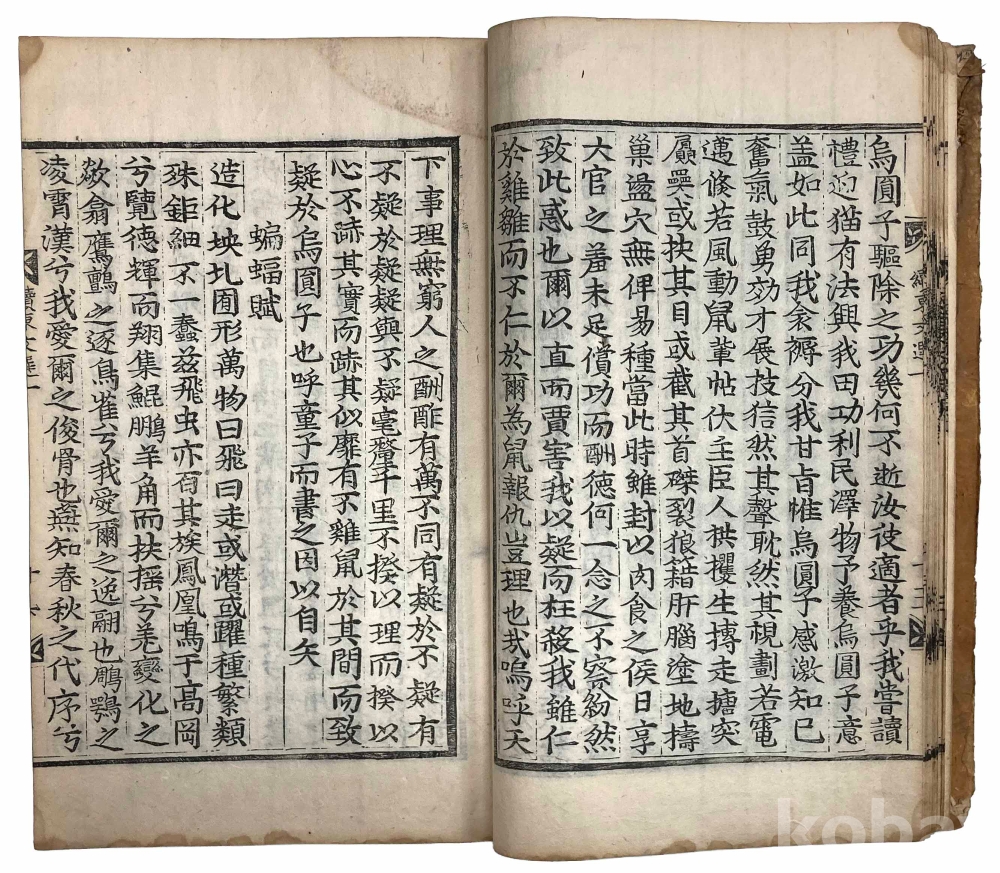 烏圓子驅除之功幾何不逝汝彼適者乎我嘗讀
禮迎猫有法興我田功利民澤物予養烏圓子意
盖如此同我衾褥分我甘旨惟烏圓子感激知己
奮氣鼓勇効才展技信然其聲耽然其視劃若電
邁倏若風動鼠輩帖伏主臣人拱攫生搏走搪突
贔屭或抉其目或截其首磔裂狼籍肝腦塗地擣
巢盪穴無俾易種當此時雖封以肉食之侯日享
大官之羞未足償功而酬德何一念之不察紛然
致此惑也爾以直而賈害我以疑而枉殺我雖仁
於雞雛而不仁於爾為鼠報仇豈理也㦲嗚呼天
下事理無窮人之酬酢有萬不同有疑於不疑有
不疑於疑疑與不疑毫釐千里不揆以理而揆以
心不跡其實而跡其似靡有不雞鼠於其間而致
疑於烏圓子也呼童子而書之因以自矢
蝙蝠賦
造化坱圠囿形萬物曰飛曰走或潛或躍種繁類
殊鉅細不一蠢茲飛虫亦有其族鳳凰鳴于高岡
兮覽德輝而翔集鯤鵬羊角而扶搖兮羌變化之
欻翕鷹鸇之逐鳥雀兮我愛爾之逸翮也鵰鶚之
凌霄漢兮我愛爾之俊骨也鷰知春秋之代序兮
續東文選一
koba